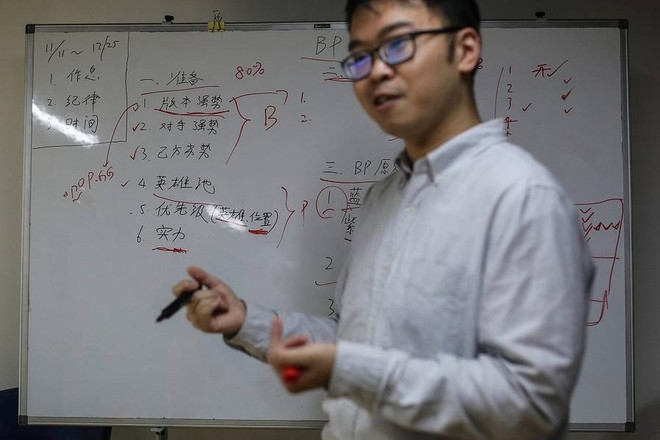 11/11 ~ 12/25
1. 作息
2. 纪律
3. 时间
OP.GG
一、准备
80%
1. 版本强势
2. 对手强势
3. 乙方劣势
B
4. 英雄池
5. 优先级(英雄.位置)
6. 实力
P
BP
二
1.
2.
三. BP原
1. 蓝
紫
2
3
1
2
3